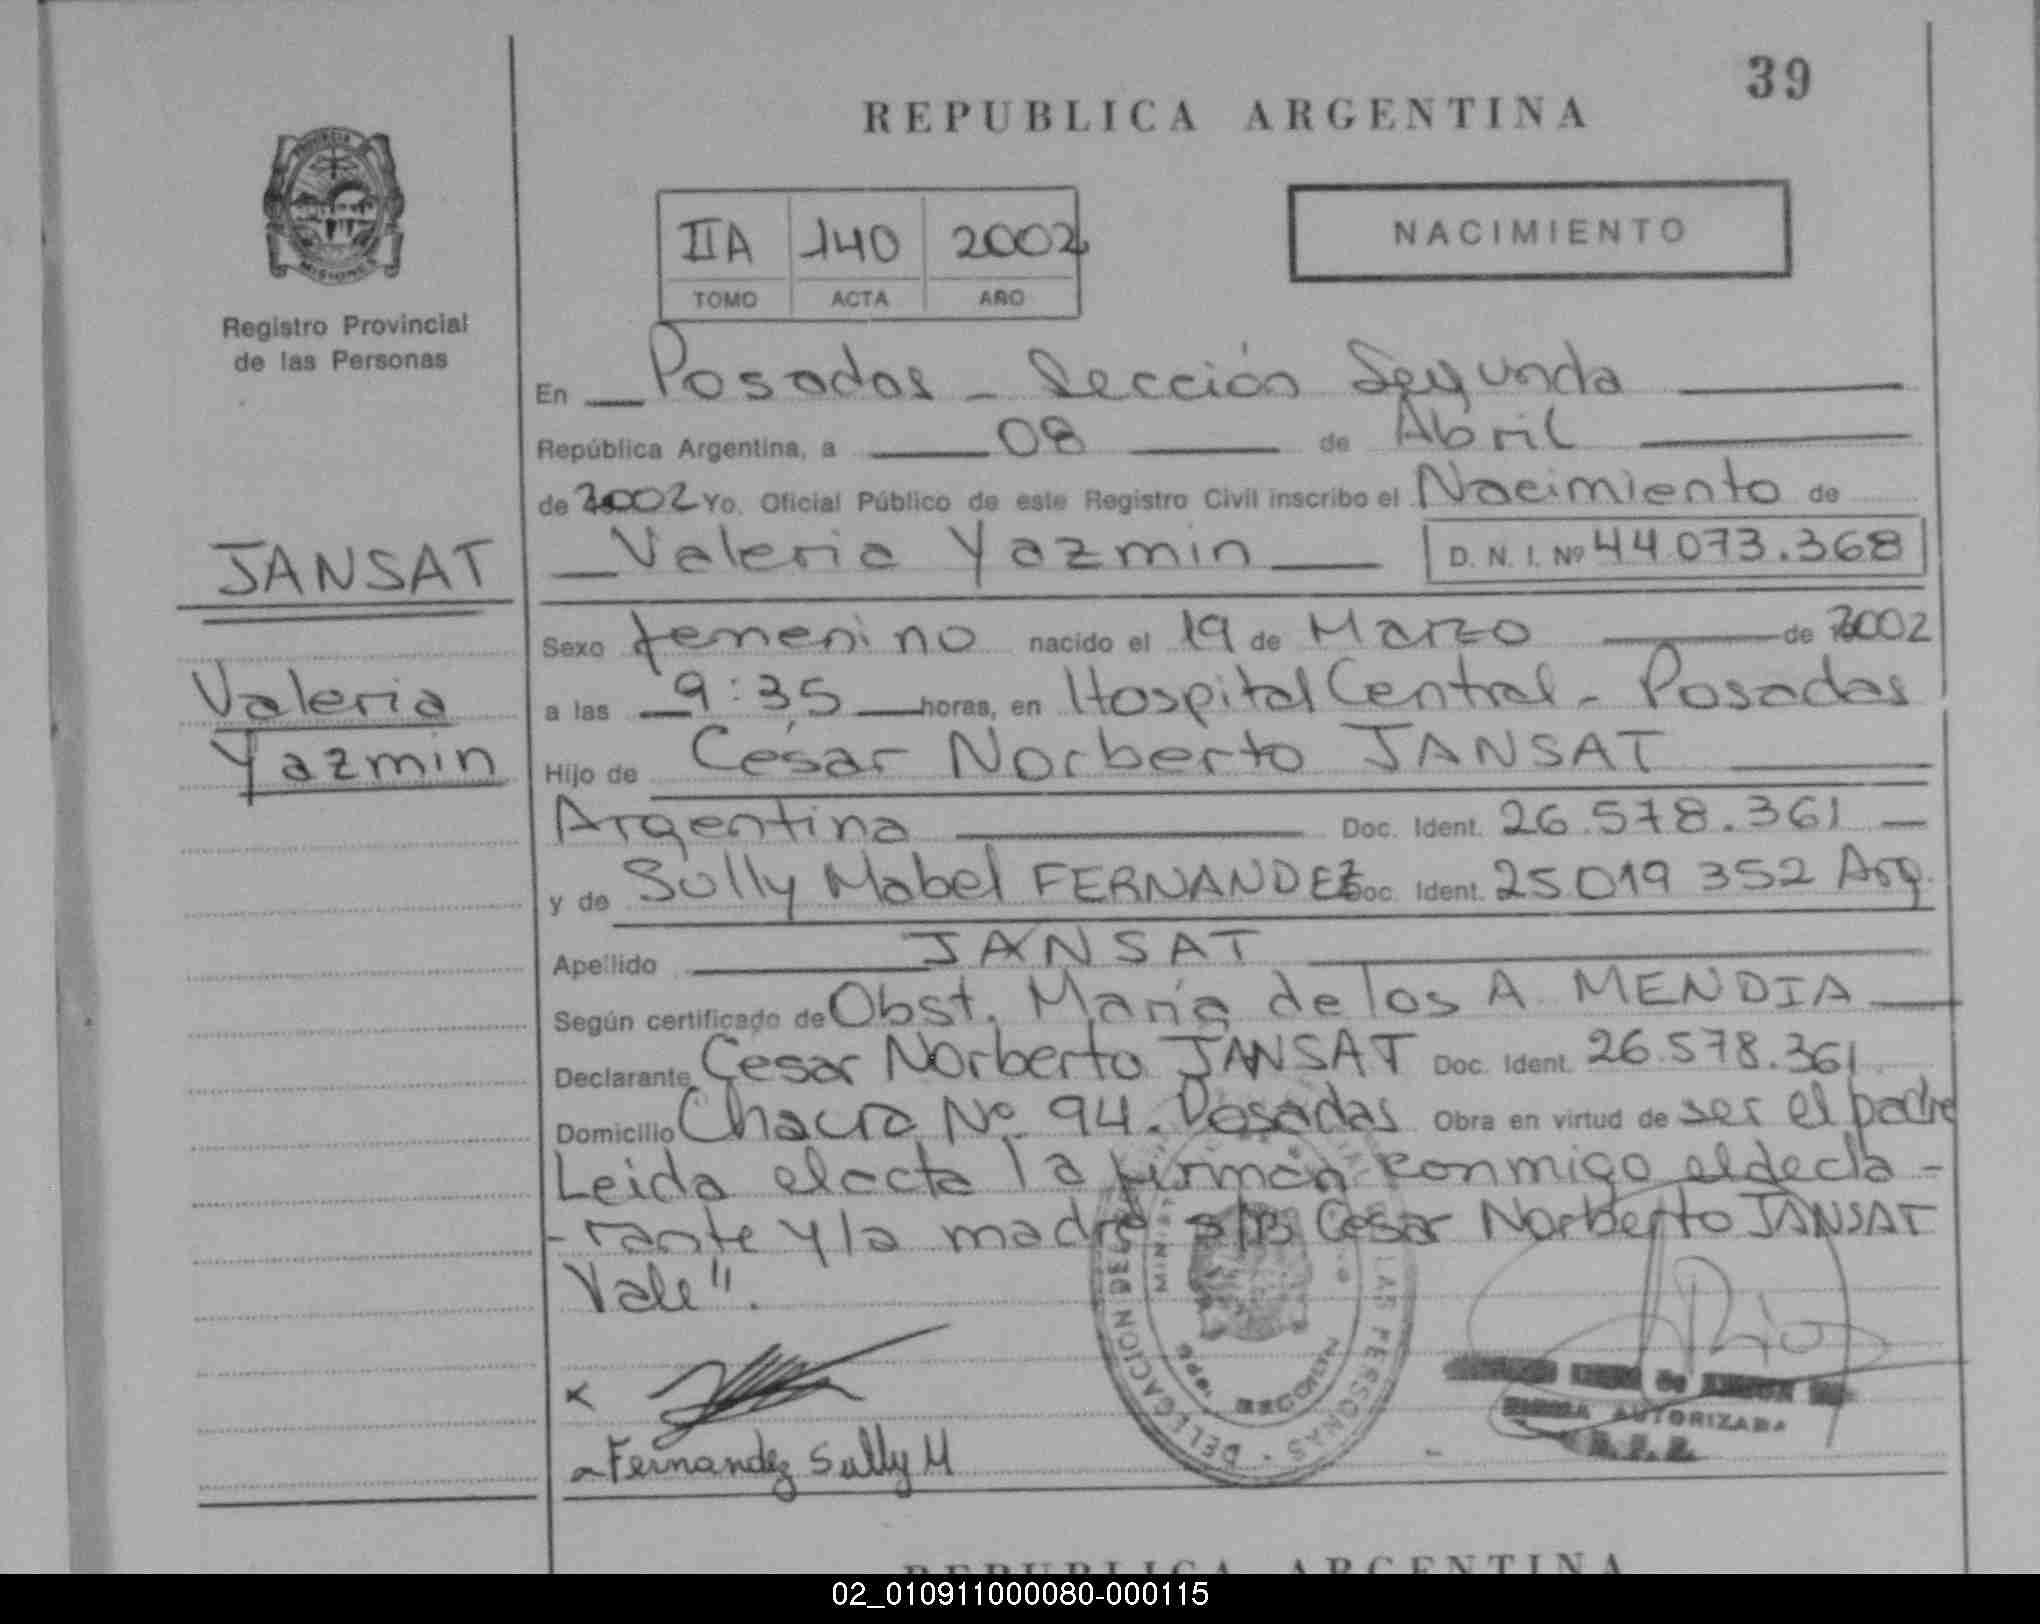 39
REPUBLICA ARGENTINA
IIA 140 2002
TOMO ACTA AÑO
NACIMIENTO
MISIONES
Registro Provincial
de las Personas
En Posadas - Sección Segunda
República Argentina, a 08 de Abril
de 2002 Yo, Oficial Público de este Registro Civil inscribo el Nacimiento de
Valeria Yazmin D. N. I. Nº 44.073.368
JANSAT
Valeria
Yazmin
Sexo femenino nacido el 19 de Marzo de 2002
a las 9:35 horas, en Hospital Central - Posadas
Hijo de César Norberto JANSAT
Argentina Doc. Ident. 26.578.361
y de Sully Mabel FERNANDEZ Doc. Ident. 25.019 352 Arg.
Apellido JANSAT
Según certificado de Obst. María de los A. MENDIA
Declarante Cesar Norberto JANSAT Doc. Ident. 26.578.361
Domicilio Chacra Nº 94. Posadas Obra en virtud de ser el padre
Leida el acta la firman conmigo el decla-
-rante y la madre s/r Cesar Norberto JANSAT
Vale".
x
Fernandez Sully M
DELEGACION DE LAS PERSONAS
AUTORIZADA
REPUBLICA ARGENTINA
02_010911000080-000115